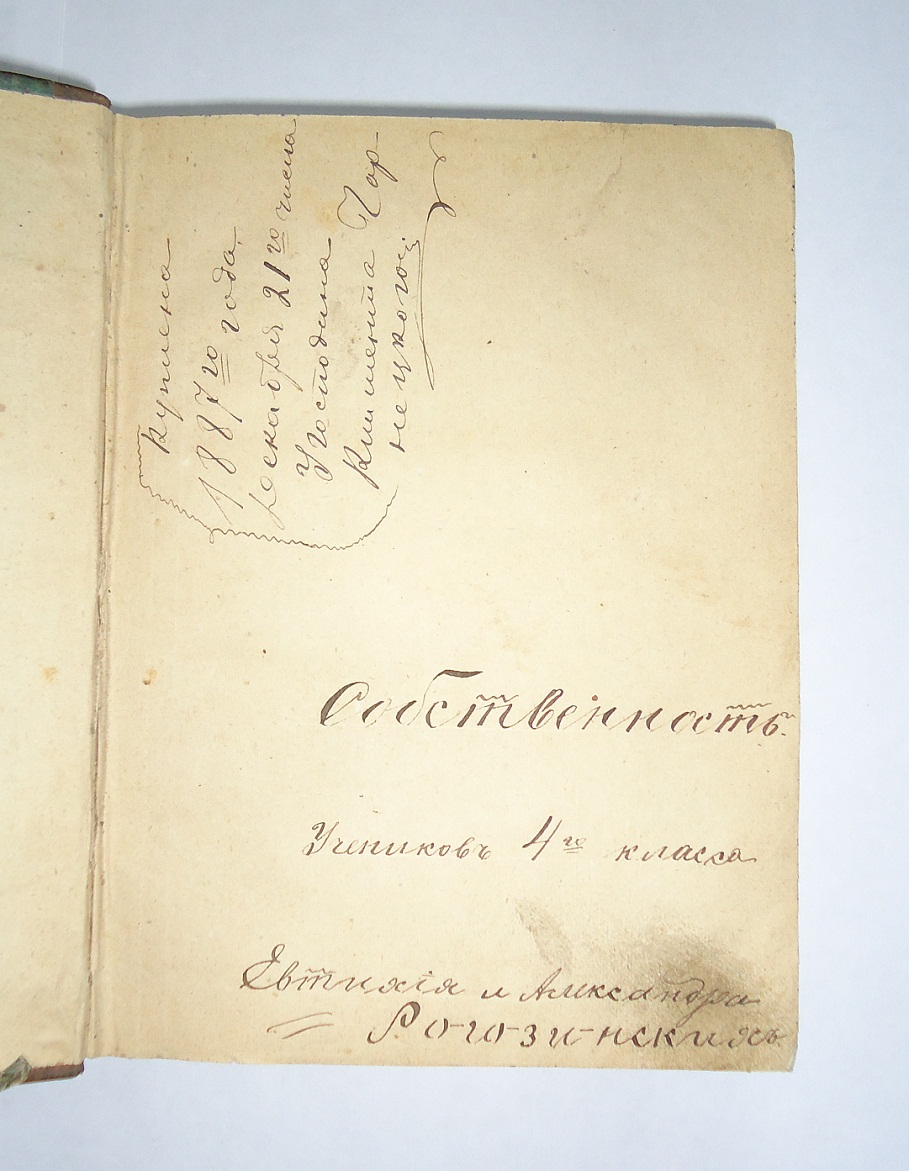 Куплена
1887го года
декабря 21го числа
Господина
Климента Чор-
нецкого
Собственность.
Учениковъ 4го класса
Евтихія и Александра
Рогозинскихъ